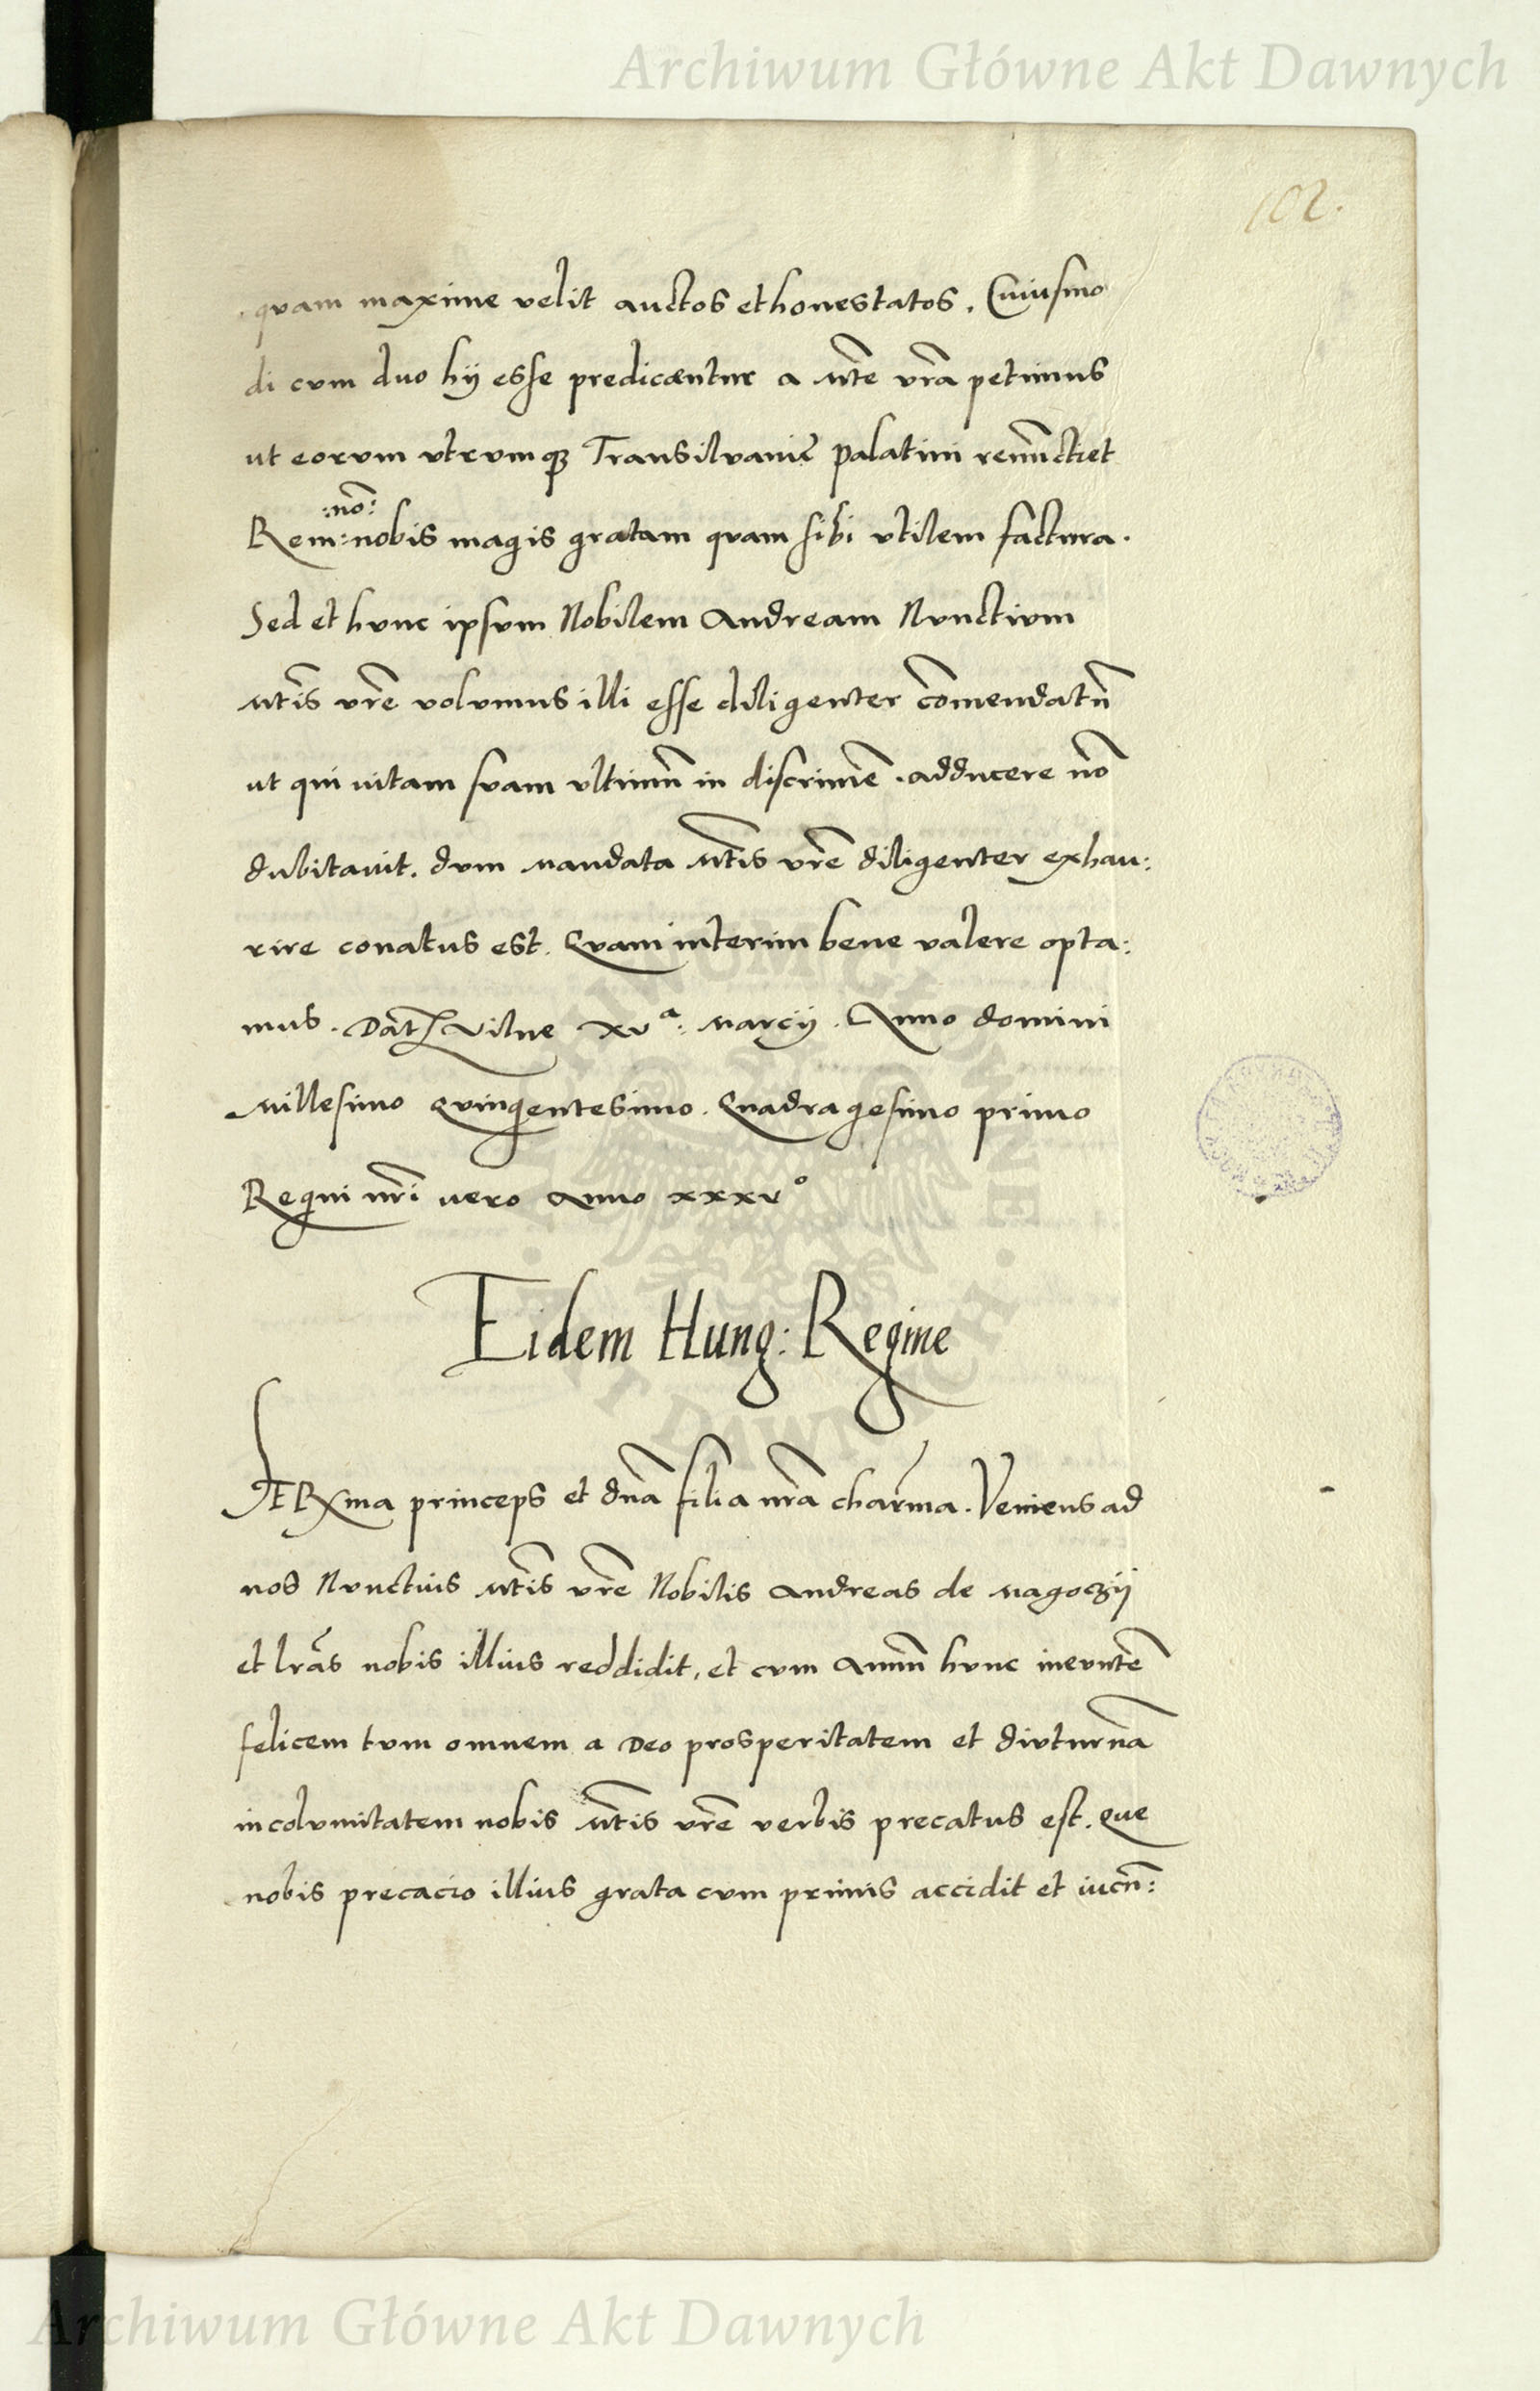 Archiwum Główne Akt Dawnych
102.
quam maxime velit auctos et honestatos. Cuiusmo
di cum duo hij esse predicantur a Mte vra petimus
ut eorum utrumq3 Transiluanię palatini renunctiet
:no:
Rem: nobis magis gratam quam sibi utilem factura.
Sed et hunc ipsum Nobilem Andream Nunctium
Mtis vre volumus illi esse diligenter comendatū
ut qui uitam suam ultimū in discrimē adducere nō
dubitauit. dum mandata Mtis vre diligenter exhau:
rire conatus est. Quam interim bene valere opta:
mus. Dat Vilne xva: Marcij. Anno domini
Millesimo Quingentesimo. Quadragesimo primo
Regni nri uero Anno xxxvo
Eidem Hung: Regine
SERma princeps et dna filia nra charma. Veniens ad
nos Nunctius Mtis vre Nobilis Andreas de Magoczij
et lras nobis illius reddidit, et cum Annū hunc ineuntē
felicem tum omnem a Deo prosperitatem et diuturnā
incolumitatem nobis Mtis vre verbis precatus est. Que
nobis precacio illius grata cum primis accidit et iucū:
Archiwum Główne Akt Dawnych